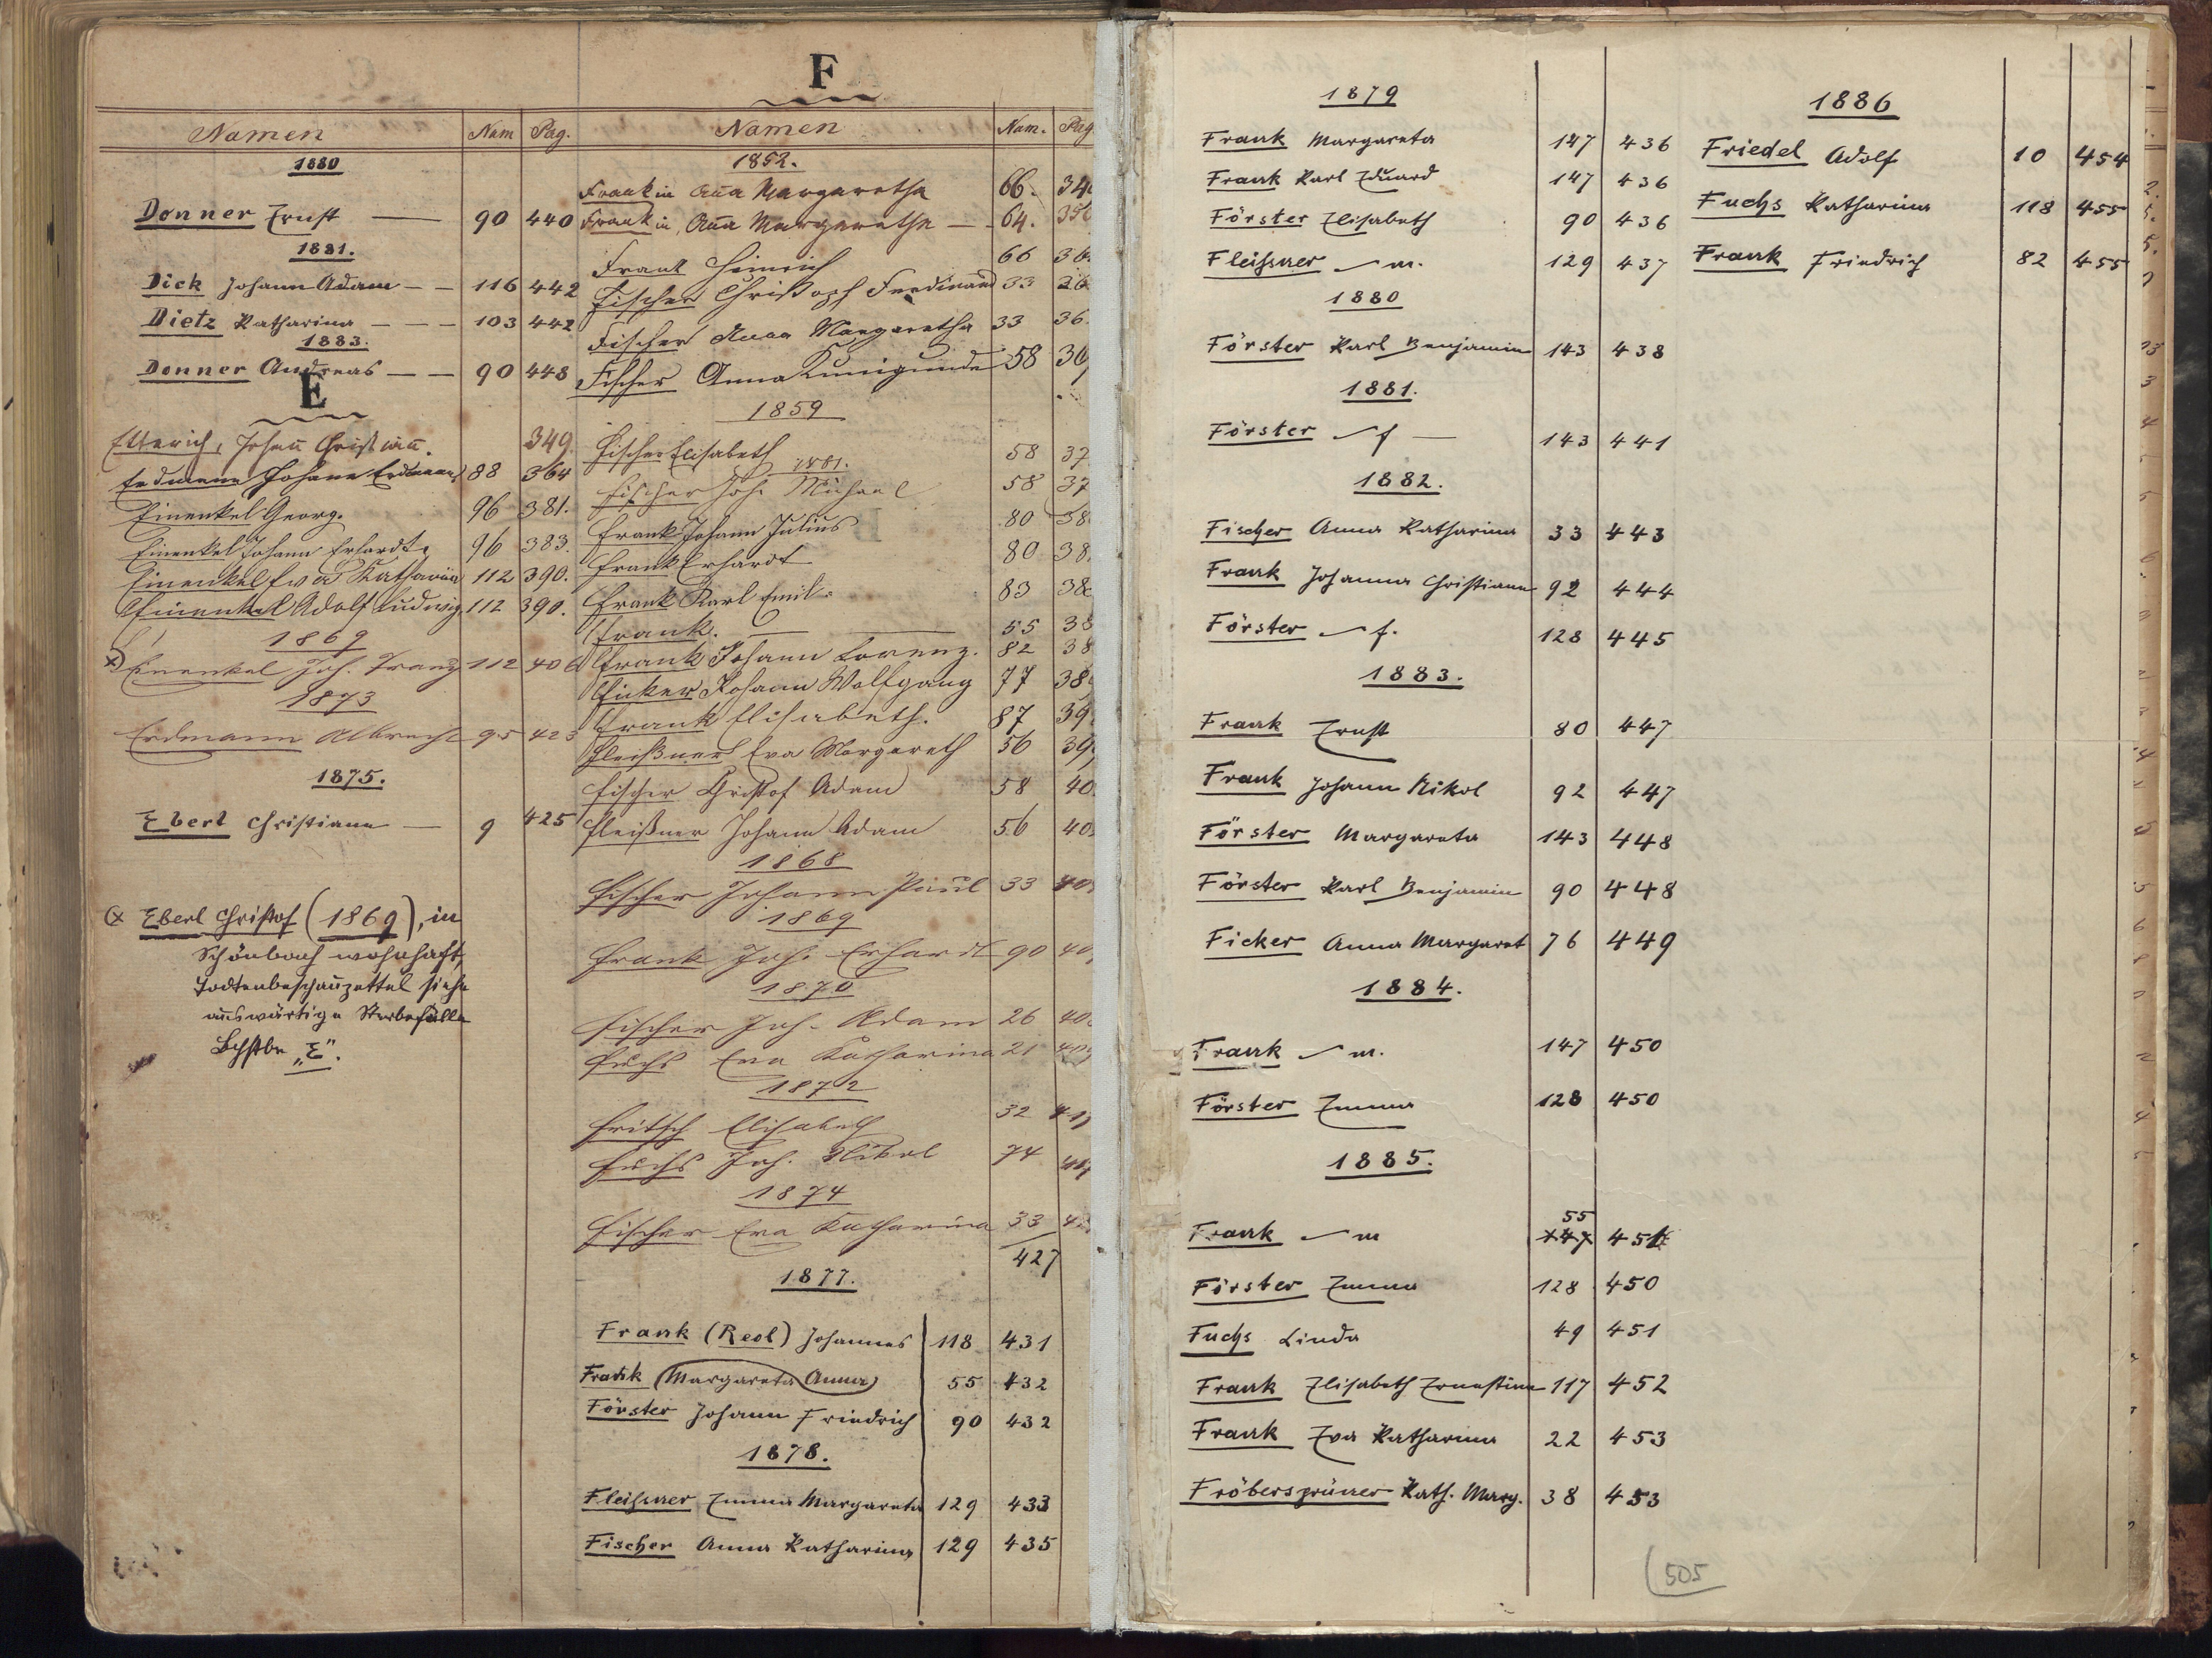 Namen Num Pag.
1880
Donner Ernst — 90 440
1881.
Dick Johann Adam — — 116 442
Dietz Katharina — — — 103 442
1883.
Donner Andreas — — 90 448
E
Etterich, Johañ Christiañ. 349
Erdmann Johann Erdmann 88 364
Einenkel Georg. 96 381.
Einenkel Johann Erhardt. 96 383.
Einenkel Eva Katharina 112 390.
Einenkel Adolf Ludwig 112 390.
1869
x) Einenkel Joh. Franz 112 406
1873
Erdmann Albrecht 95 423
1875.
Eberl Christiana — 9 425
(x Eberl Christof (1869), in
Schönbach wohnhaft,
Todtenbeschauzettel siehe
auswärtige Sterbefälle
Bchstbe „E".
F
Namen Num. Pag.
1852.
Frankin Aña Margaretha 66.
Frankin, Aña Margaretha — 64.
Frank Heinrich 66
Fischer Christoph Ferdinand 33
Fischer Anna Margaretha 33
Fischer Anna Kunigunde 58
1859
Fischer Elisabeth 58
1881.
Fischer Joh. Michael 58
Frank Johann Julius 80
Frank Erhardt 80
Frank Karl Emil. 83
Frank. — — 55
Frank Johann Lorenz. 82
Ficker Johann Wolfgang 77
Frank Elisabeth. 87
Fleißner Eva Margareth 56
Fischer Christof Adam 58
Fleißner Johann Adam 56
1868
Fischer Johann Paul 33
1869
Frank Joh. Erhardt 90
1870
Fischer Joh. Adam 26
Fuchs Eva Katharina 21
1872
Fritsch Elisabeth 32
Fuchs Joh. Nikol 74
1874
Fischer Eva Katharina 33
427
1877.
Frank (Reol) Johannes 118 431
Frank (Margareta Anna) 55 432
Förster Johann Friedrich 90 432
1878.
Fleißner Emma Margareta 129 433
Fischer Anna Katharina 129 435
1879
Frank Margareta 147 436
Frank Karl Eduard 147 436
Förster Elisabeth 90 436
Fleißner — m. 129 437
1880
Förster Karl Benjamin 143 438
1881.
Förster — f — 143 441
1882.
Fischer Anna Katharina 33 443
Frank Johanna Christiane 92 444
Förster — f. 128 445
1883.
Frank Ernst 80 447
Frank Johann Nikol 92 447
Förster Margareta 143 448
Förster Karl Benjamin 90 448
Ficker Anna Margaret 76 449
1884.
Frank — m. 147 450
Förster Emma 128 450
1885.
55
Frank — m 147 451
Förster Emma 128 450
Fuchs Linda 49 451
Frank Elisabeth Ernestine 117 452
Frank Eva Katharina 22 453
Fröbersgrüner Kath. Marg. 38 453
1886
Friedel Adolf 10 454
Fuchs Katharina 118 455
Frank Friedrich 82 455
505